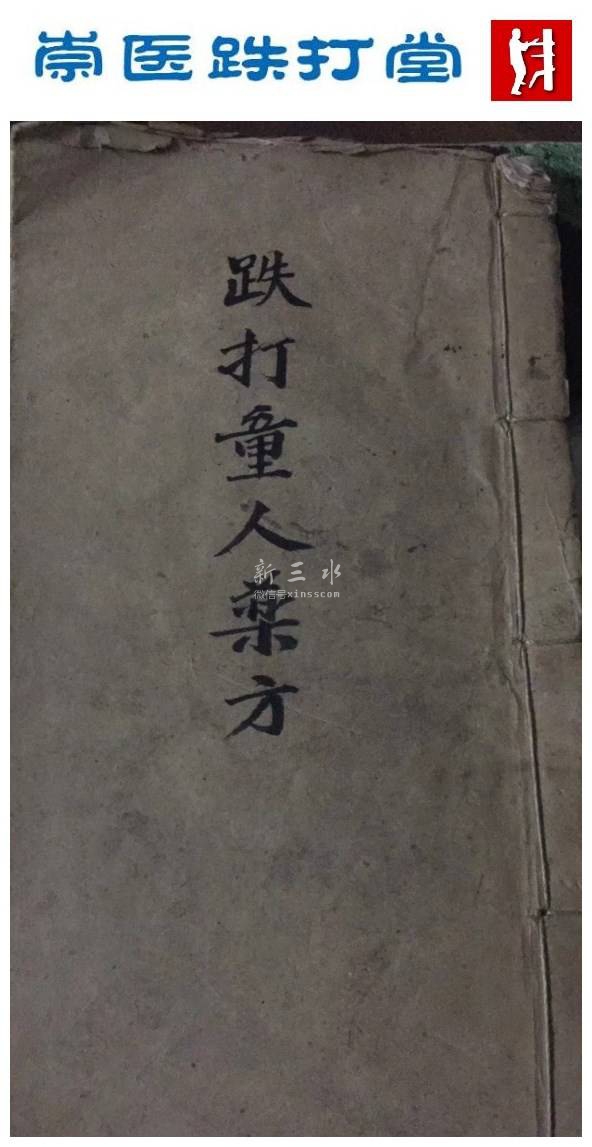 崇医跌打堂
跌打童人薬方
新三水
微信号xinsscom